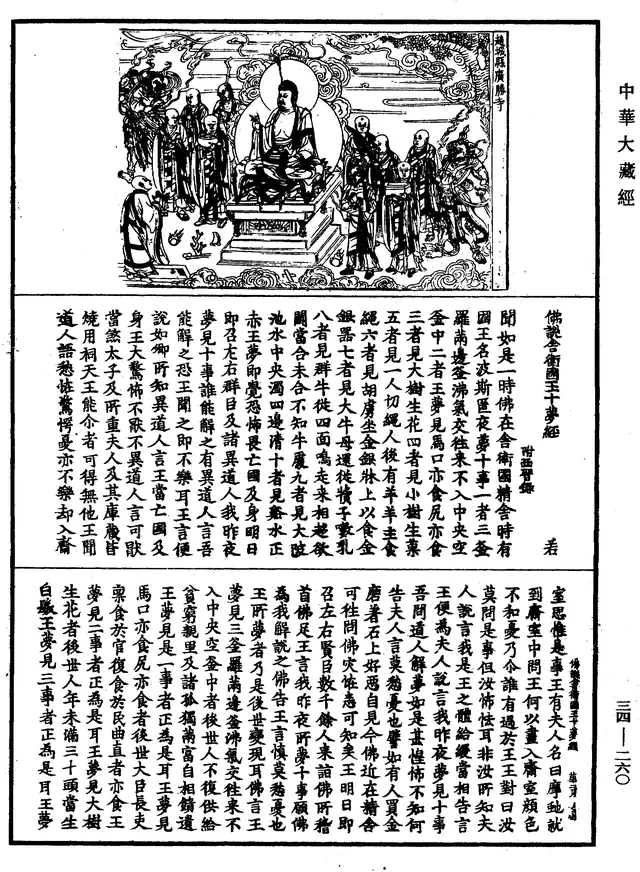 中華大藏經
三四—二六〇
趙城縣廣勝寺
佛說舍衛國王十夢經
附西晉錄
若
聞如是一時佛在舍衛國精舍時有
國王名波斯匿夜夢十事一者三釜
羅滿邊釜沸氣交往來不入中央空
釜中二者王夢見馬口亦食尻亦食
三者見大樹生花四者見小樹生菓
五者見一人切繩人後有羊羊主食
繩六者見胡虜坐金銀牀上以食金
銀器七者見大牛母還從犢子敷乳
八者見群牛從四面鳴走來相趣欲
鬪當合未合不知牛屬九者見大陂
池水中央濁四邊清十者見谿水正
赤王夢即覺恐怖畏亡國及身明日
即召左右群臣及諸異道人我昨夜
夢見十事誰能解之有異道人言吾
能解之恐王聞之即不樂耳王言便
說如卿所知異道人言王當亡國及
身王大驚怖不歡異道人言可猒
當然太子及所重夫人及其庫藏皆
燒用祠天王能介者可得無他王聞
道人語愁怔驚愕憂亦不樂却入齋
室思惟是事王有夫人名曰摩𠰷就
到齋室中問王何以晝入齋室顏色
不和憂乃尒誰有過於王王對曰汝
莫問是事但汝怖怯耳非汝所知夫
人說言我是王之體給緩當相告言
王便為夫人說言我昨夜夢見十事
吾問道人解夢如是甚惶怖不知何
告夫人言莫愁憂也譬如有人買金
磨著石上好惡自見今佛近在精舍
可往問佛灾恠悉可知矣王明日即
召左右賢臣數千餘人來詣佛所稽
首佛足王言我昨夜所夢十事願佛
為我解說之佛告王言慎莫愁憂也
王所夢者乃是後世變現耳佛言王
夢見三釜羅滿邊釜沸氣交往來不
入中央空釜中者後世人不復供給
貧窮親里及諸孤獨滿富自相饋遺
王夢見是一事者正為是耳王夢見
馬口亦食尻亦食者後世大臣長吏
稟食於官復食於民曲直者亦食王
夢見二事者正為是耳王夢見大樹
生花者後世人年未滿三十頭當生
白髮王夢見三事者正為是耳王夢